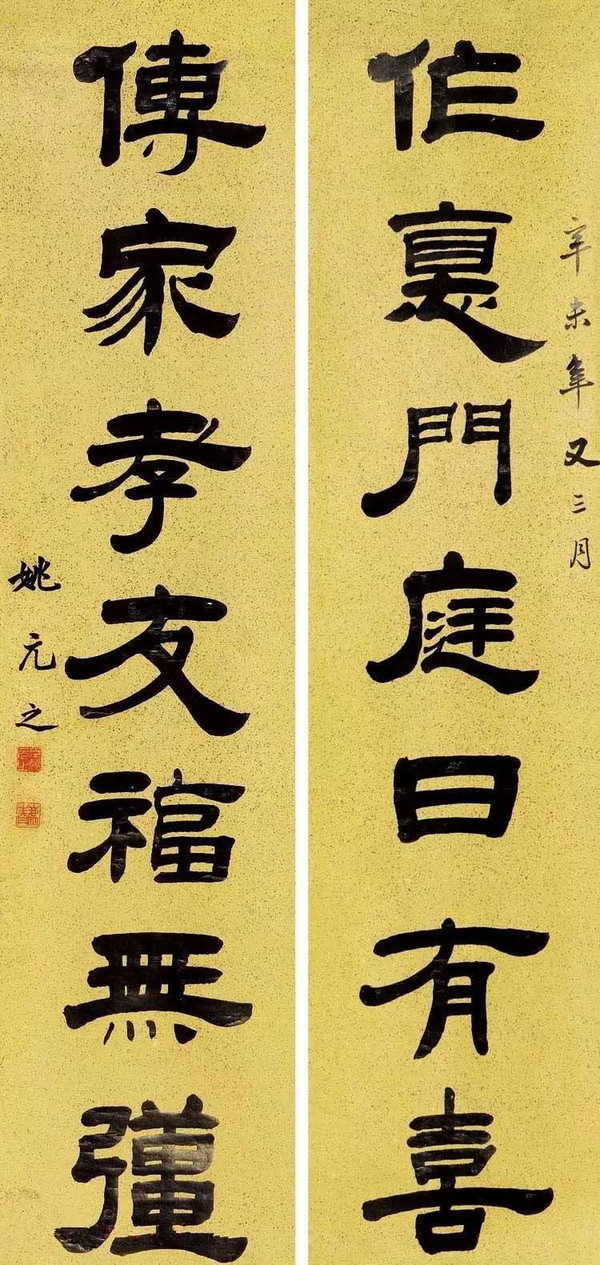 辛未年又三月
作悳門庭日有喜
傳家孝友福無彊
姚元之